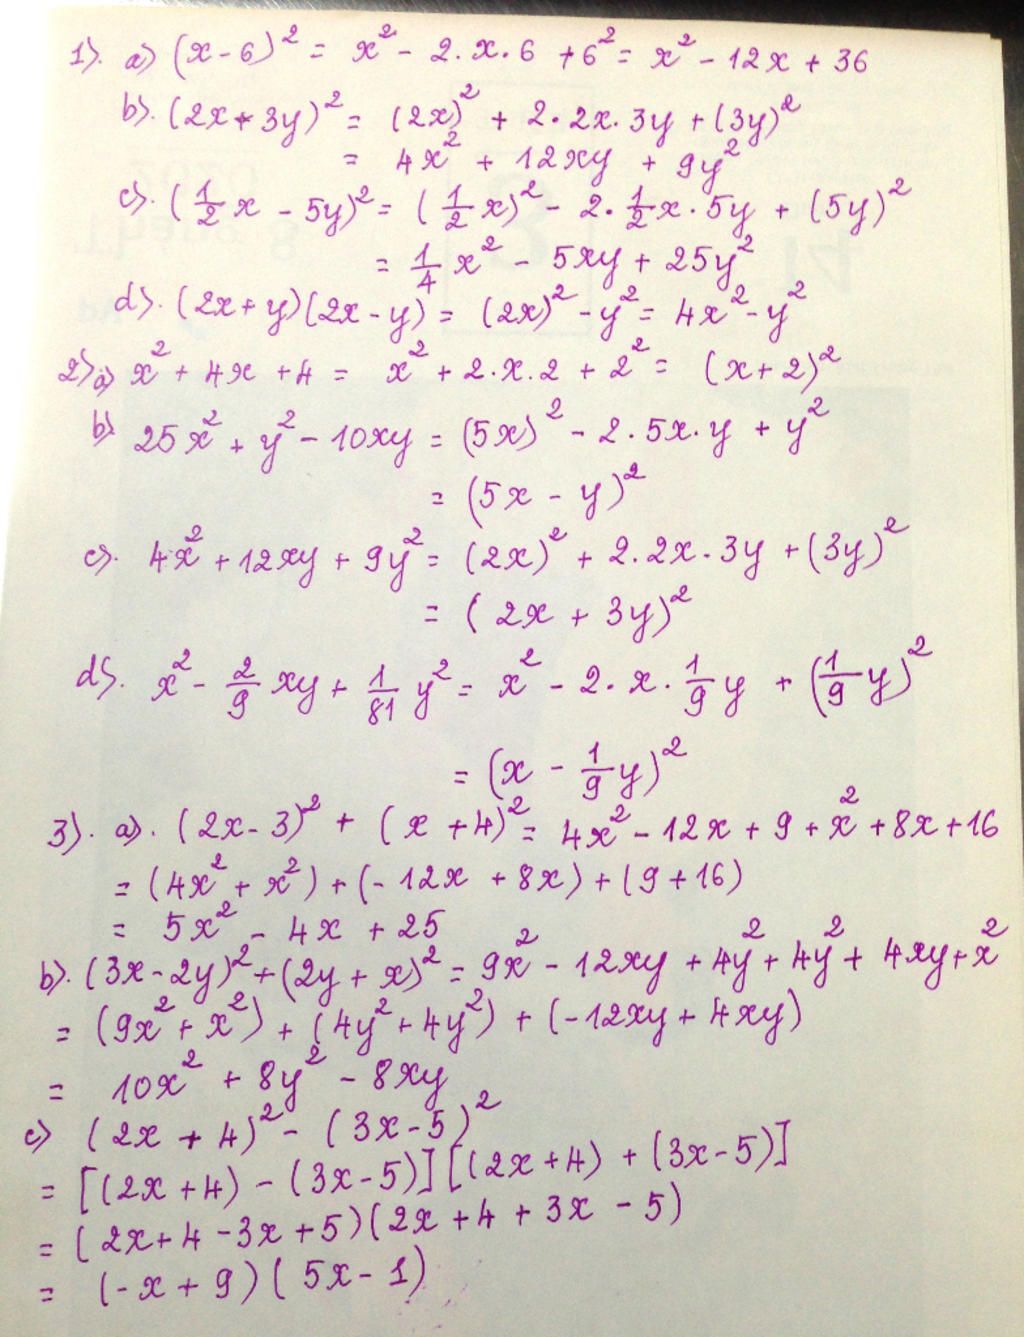 1). a) (x - 6)² = x² - 2.x.6 + 6² = x² - 12x + 36
b). (2x + 3y)² = (2x)² + 2.2x.3y + (3y)²
= 4x² + 12xy + 9y²
c). (1/2 x - 5y)² = (1/2 x)² - 2.1/2 x.5y + (5y)²
= 1/4 x² - 5xy + 25y²
d). (2x + y)(2x - y) = (2x)² - y² = 4x² - y²
2) a) x² + 4x + 4 = x² + 2.x.2 + 2² = (x + 2)²
b) 25x² + y² - 10xy = (5x)² - 2.5x.y + y²
= (5x - y)²
c). 4x² + 12xy + 9y² = (2x)² + 2.2x.3y + (3y)²
= (2x + 3y)²
d). x² - 2/9 xy + 1/81 y² = x² - 2.x.1/9 y + (1/9 y)²
= (x - 1/9 y)²
3). a). (2x - 3)² + (x + 4)² = 4x² - 12x + 9 + x² + 8x + 16
= (4x² + x²) + (-12x + 8x) + (9 + 16)
= 5x² - 4x + 25
b). (3x - 2y)² + (2y + x)² = 9x² - 12xy + 4y² + 4y² + 4xy + x²
= (9x² + x²) + (4y² + 4y²) + (-12xy + 4xy)
= 10x² + 8y² - 8xy
c) (2x + 4)² - (3x - 5)²
= [(2x + 4) - (3x - 5)] [(2x + 4) + (3x - 5)]
= (2x + 4 - 3x + 5)(2x + 4 + 3x - 5)
= (-x + 9)(5x - 1)